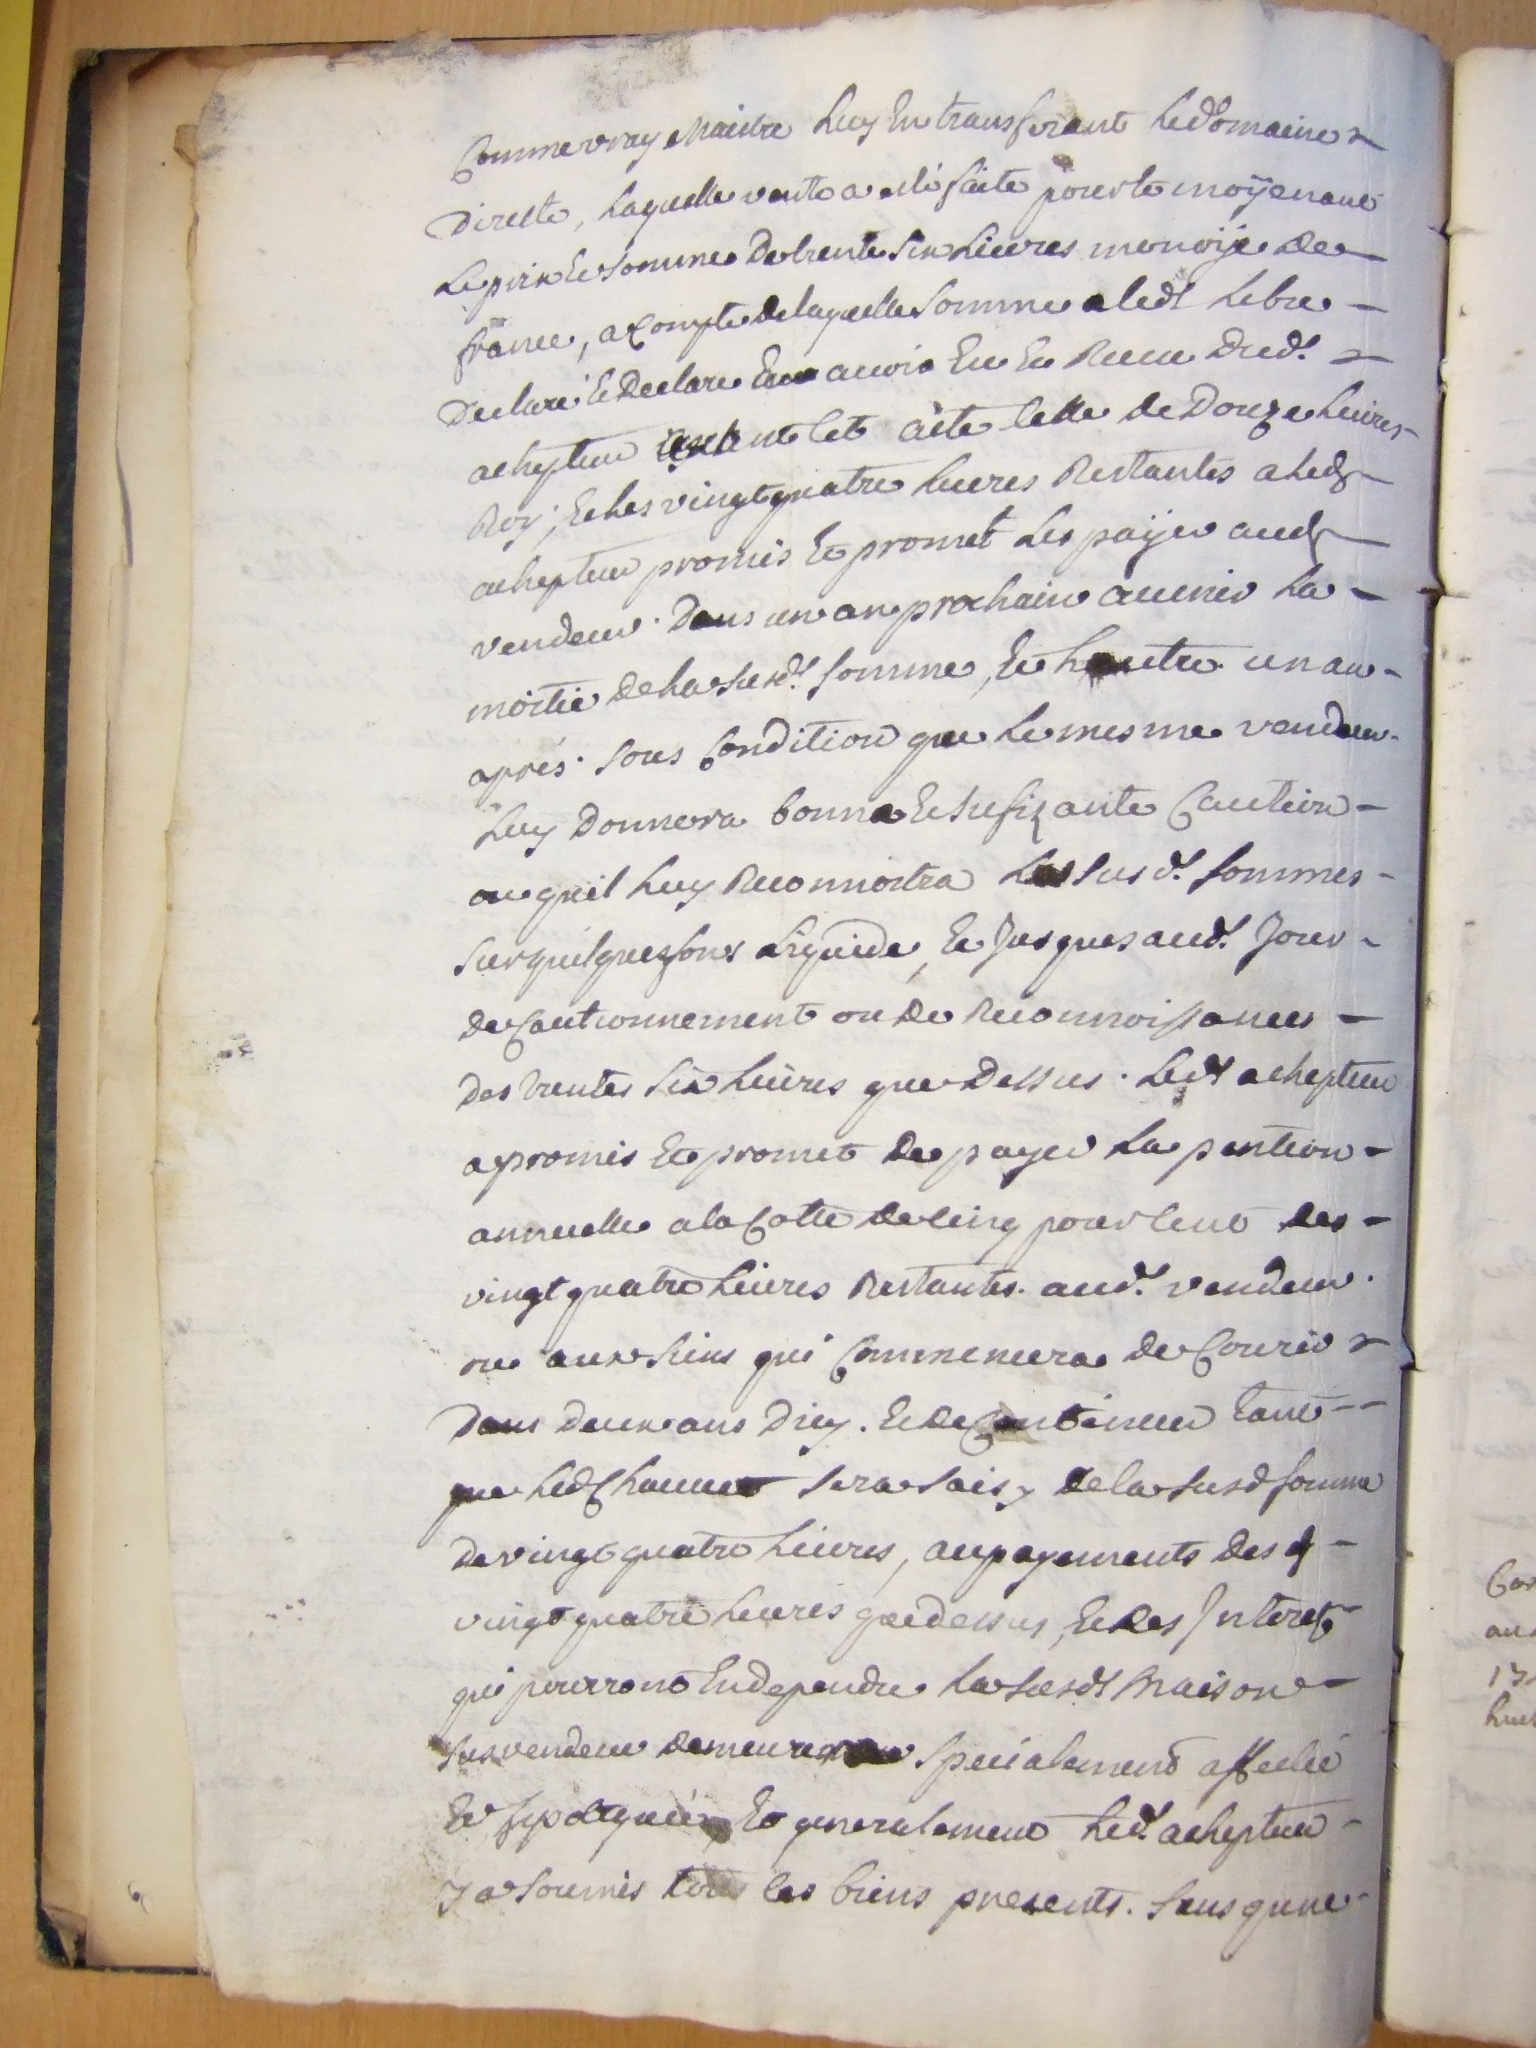 Comme vray Maistre Luy En transferant Le domaine
Directe, Laquelle vente a esté faite pour le moÿenant
Le prix Et Somme De trente Six Livres monoÿe de
france, a Compte de laquelle Somme a led.t Lebre
Declaré Et Declare avoir Eu Et Receu Dud.t
achepteur cette celle de Douze Livres
Roy; Et Les vingt quatre Livres Restantes a Led
achepteur promis Et promet Les paÿer aud
vendeur. Dans un an prochain avenir La
moitié De La susd.t somme, Et L'autre un an
aprés. Sous Condition que Le mesme vendeur
Luy Donnera bonne Et sufizante Caution
ou quil Luy Reconnoitra Les susd.t sommes
Sur quelques fons Liquide, Et Jusques aud.t Jour
de Cautionnement ou De Reconnoissances
des trentes Six Livres que Dessus. Led.t achepteur
a promis Et promet De payer La pention
annuelle a la Cotte de cinq pour cent des
vingt quatre Livres Restantes. aud.t vendeur.
ou aux siens qui Commencera de Courir
Dans Deux ans D'icy. Et De Continuer tant
que Led sera saisy de la susd somme
de vingt quatre Livres, au payements des
vingt quatre Livres que dessus, Et Des Interets
qui pourront En dependre La susd.t Maison
sus vendeue demeurera specialement affectée
Et Ipotequée Et generalement Led.t achepteur
y a soumis tous les biens presents. sans que